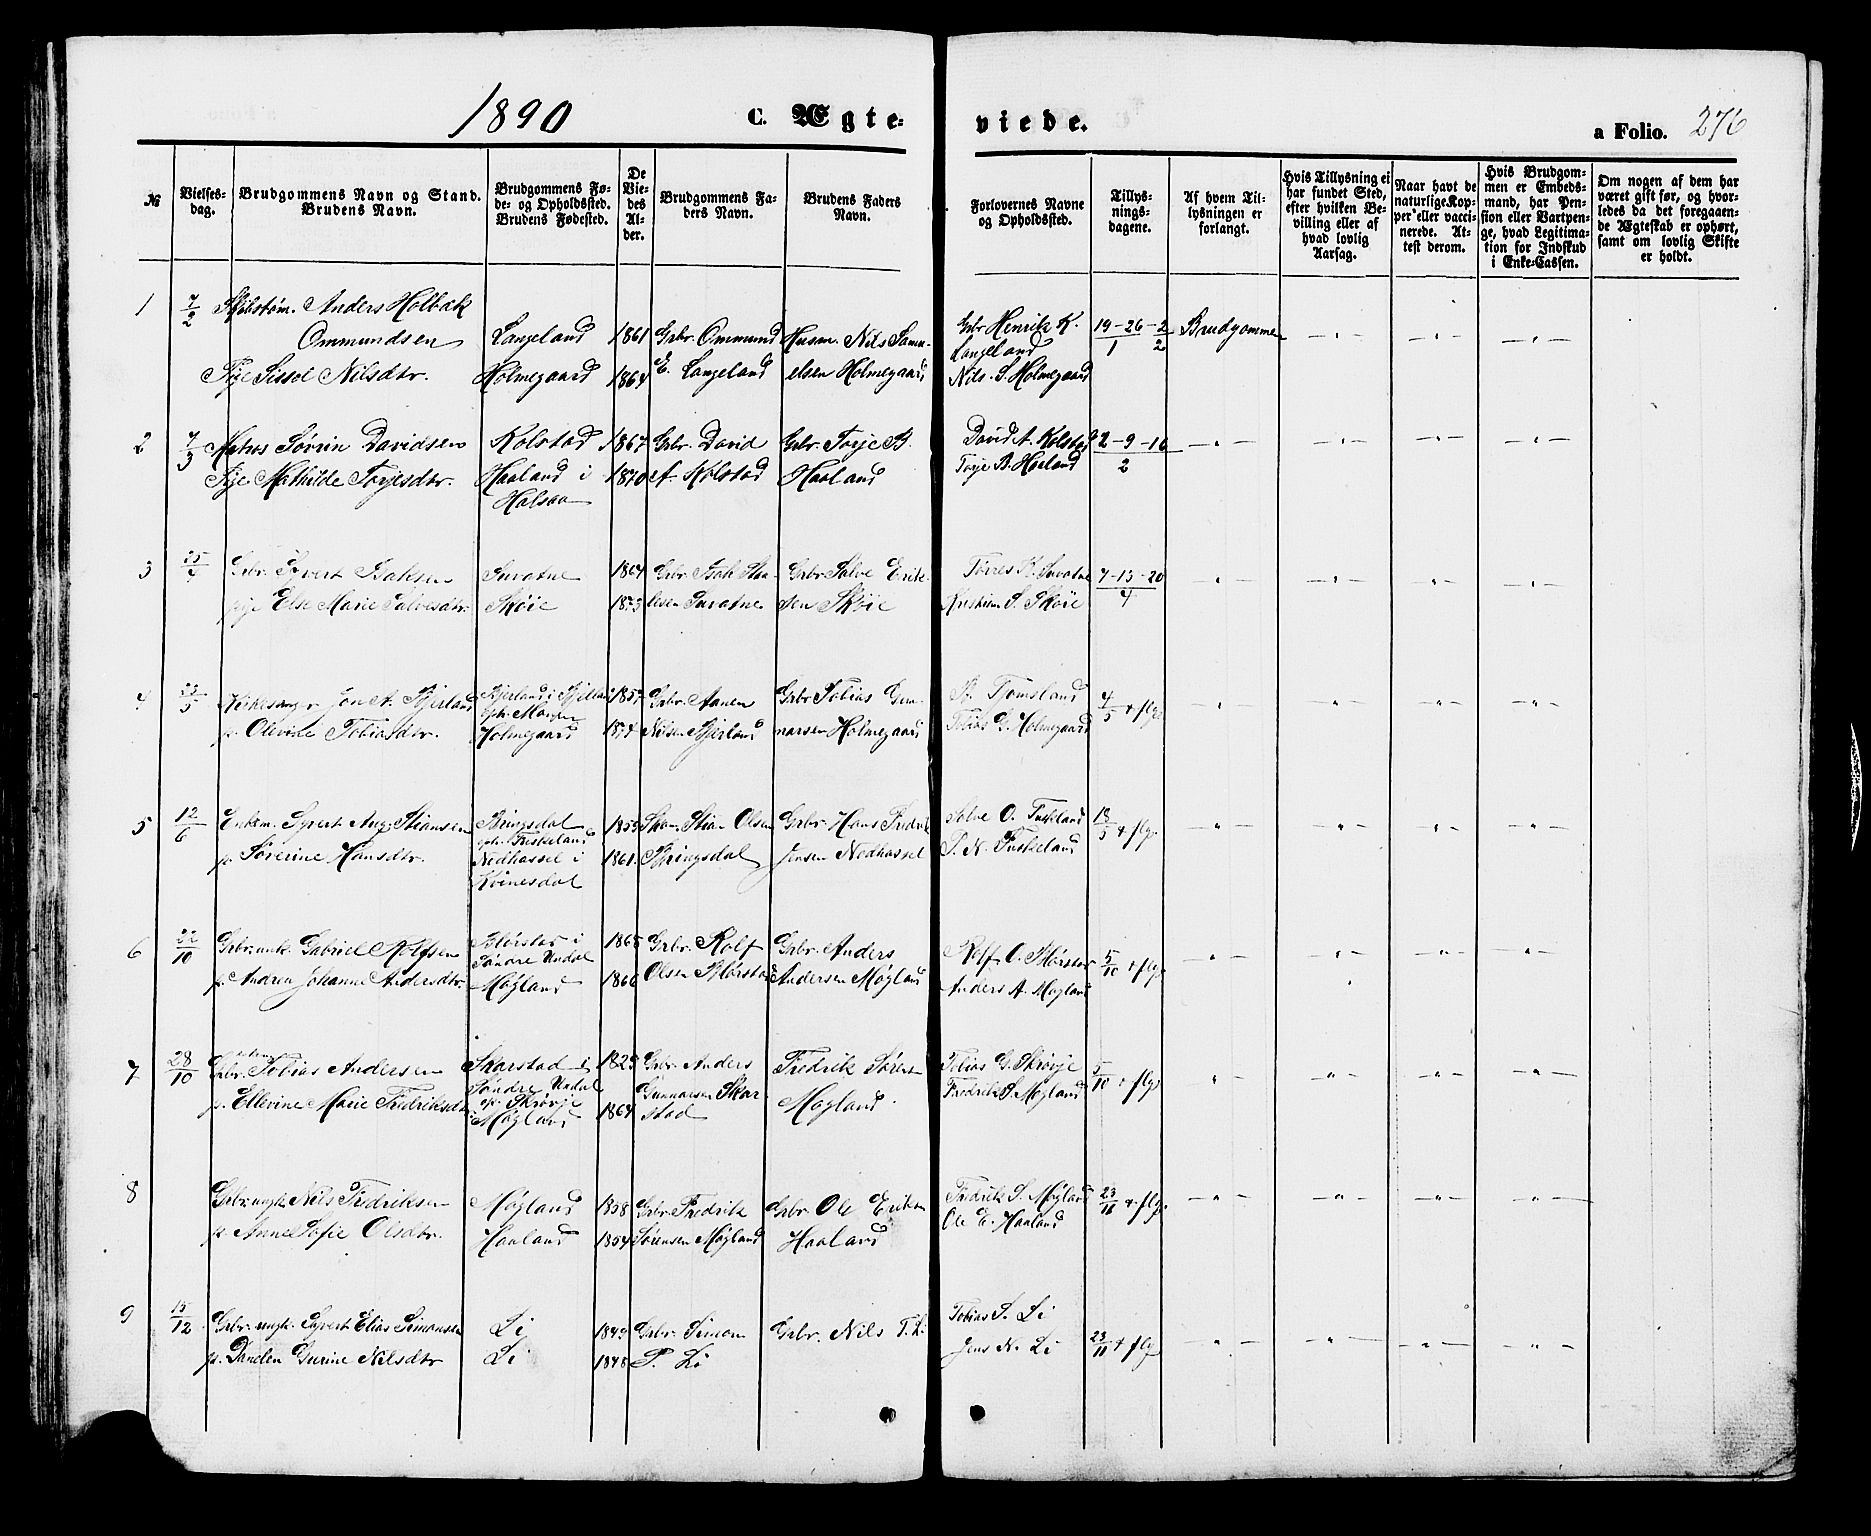 1890 C. Ægte-
viede. a Folio. 276
№
Vielses-
dag.
Brudgommens Navn og Stand.
Brudens Navn.
Brudgommens Fø-
de- og Opholdssted.
Brudens Fødested.
De
Vie-
des
Al-
der.
Brudgommens Fa-
ders Navn.
Brudens Faders
Navn.
Forlovernes Navne
og Opholdssted.
Tillys-
nings-
dagene.
Af hvem Til-
lysningen er
forlangt.
Hvis Tillysning ei
har fundet Sted,
efter hvilken Be-
villing eller af
hvad lovlig
Aarsag.
Naar havt de
naturlige Kop-
per eller vacci-
nerede. At-
test derom.
Hvis Brudgom-
men er Embeds-
mand, har Pen-
sion eller Vartpen-
ge, hvad Legitima-
tion for Indskud
i Enke-Cassen.
Om nogen af dem har
været gift før, og hvor-
ledes da det foregaaen-
de Ægteskab er ophørt,
samt om lovlig Skifte
er holdt.
1 7/2 Anders Holbæk
Ommundsen
Pige Sissel Nilsdtr.
Langeland
Holmegaard
1861
1864
Grbr. Ommund
E. Langeland
Husm. Nils Samu-
elsen Holmegaard
Grbr Henrik K.
Langeland
Nils S. Holmegaard
19-26-2
1 2
Brudgommen
2 7/3 Matros Sørvin Davidsen
Pige Mathilde Torjesdtr.
Kolstad
Haaland i
Halsaa
1867
1870
Grbr. David
A. Kolstad
Grbr. Torje B.
Haaland
David A. Kolstad
Torje B. Haaland
2-9-16
2
3 25/4 Grbr. Sivert Isaksen
pige Else Marie Salvesdtr.
Suvatne
Skøie
1864
1873
Grbr. Isak Isa-
ksen Suvatne
Grbr Salve Erik-
sen Skøie
Tørres K. Suvatne
Kristian S. Skøie
7-13-20
4
4 23/5 Kirkesanger Jon A. Bjerland
p. Olevine Tobiasdtr.
Bjerland i Bjelland
Holmegaard
1857
1874
Grbr. Aanen
Nilsen Bjerland
Grbr Tobias Gun-
narsen Holmegaard
Tjomsland
Tobias G. Holmegaard
4/5 + flg.
5 12/6 Enkem. Syvert Aug. Stiansen
p. Sørerine Hansdtr.
Bringsdal
oph. Fuskeland
Nedhassel i
Kvinesdal
1853
1861
Stian Olsen
Bringsdal
Grbr. Hans Fredrik
Jensen Nedhassel
Salve O. Fuskeland
P. N. Fuskeland
18/5 + flg.
6 22/10 Grbr. ungk. Gabriel Rolfsen
p. Andrea Johanne Andersdtr.
Blørstad i
Søndre Undal
Møgland
1865
1866
Grbr. Rolf
Olsen Blørstad
Grbr. Anders
Andersen Møgland
Rolf O. Blørstad
Anders A. Møgland
5/10 + flg.
7 28/10 Grbr. Tobias Andersen
p. Ellevine Marie Fredriksdtr.
Skarstad i
Søndre Undal
oph. Skrøvje
Møgland
1829
1864
Grbr. Anders
Gunnarsen Skar
stad
Fredrik Sørens
Møgland
Tobias G. Skrøvje
Fredrik S. Møgland
5/10 + flg.
8
Grbr. ungk. Nils Fredriksen
p. Anne Sofie Olsdtr.
Møgland
Haaland
1858
1854
Grbr. Fredrik
Sørensen Møgland
Grbr. Ole Eriksen
Haaland
Fredrik S. Møgland
Ole E. Haaland
23/11 + flg.
9 15/12 Grbr. ungk. Syvert Elias Simonsen
p. Danelen Gurine Nilsdtr
Li
Li
1849
1848
Grbr. Simon
P. Li
Grbr. Nils T. Li
Tobias S. Li
Jens N. Li
23/11 + flg.